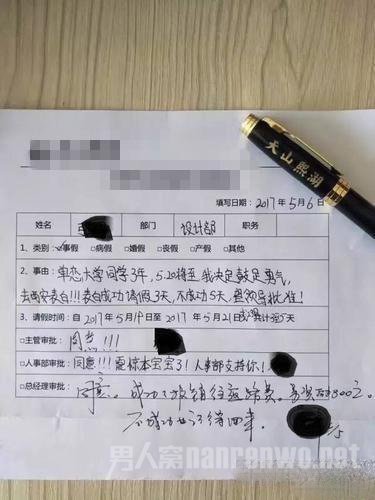 天山熙湖
填写日期：2017年5月6日
姓名 部门 设计部 职务
1、类别：☑事假 □病假 □婚假 □丧假 □产假 □其他
2、事由：单恋大学同学3年，5.20将至，我决定鼓足勇气，
去西安表白!!!表白成功请假3天，不成功5天，望领导批准！
3、请假时间：自2017年5月19日至2017年5月21日 共计 5天
□主管审批：同意!!!
□人事部审批：同意!!!震惊本宝宝了！人事部支持你！
□总经理审批：同意。成功了报销往返路费， 800元。
不成功也记得回来。
男人窝nanrenwo.net